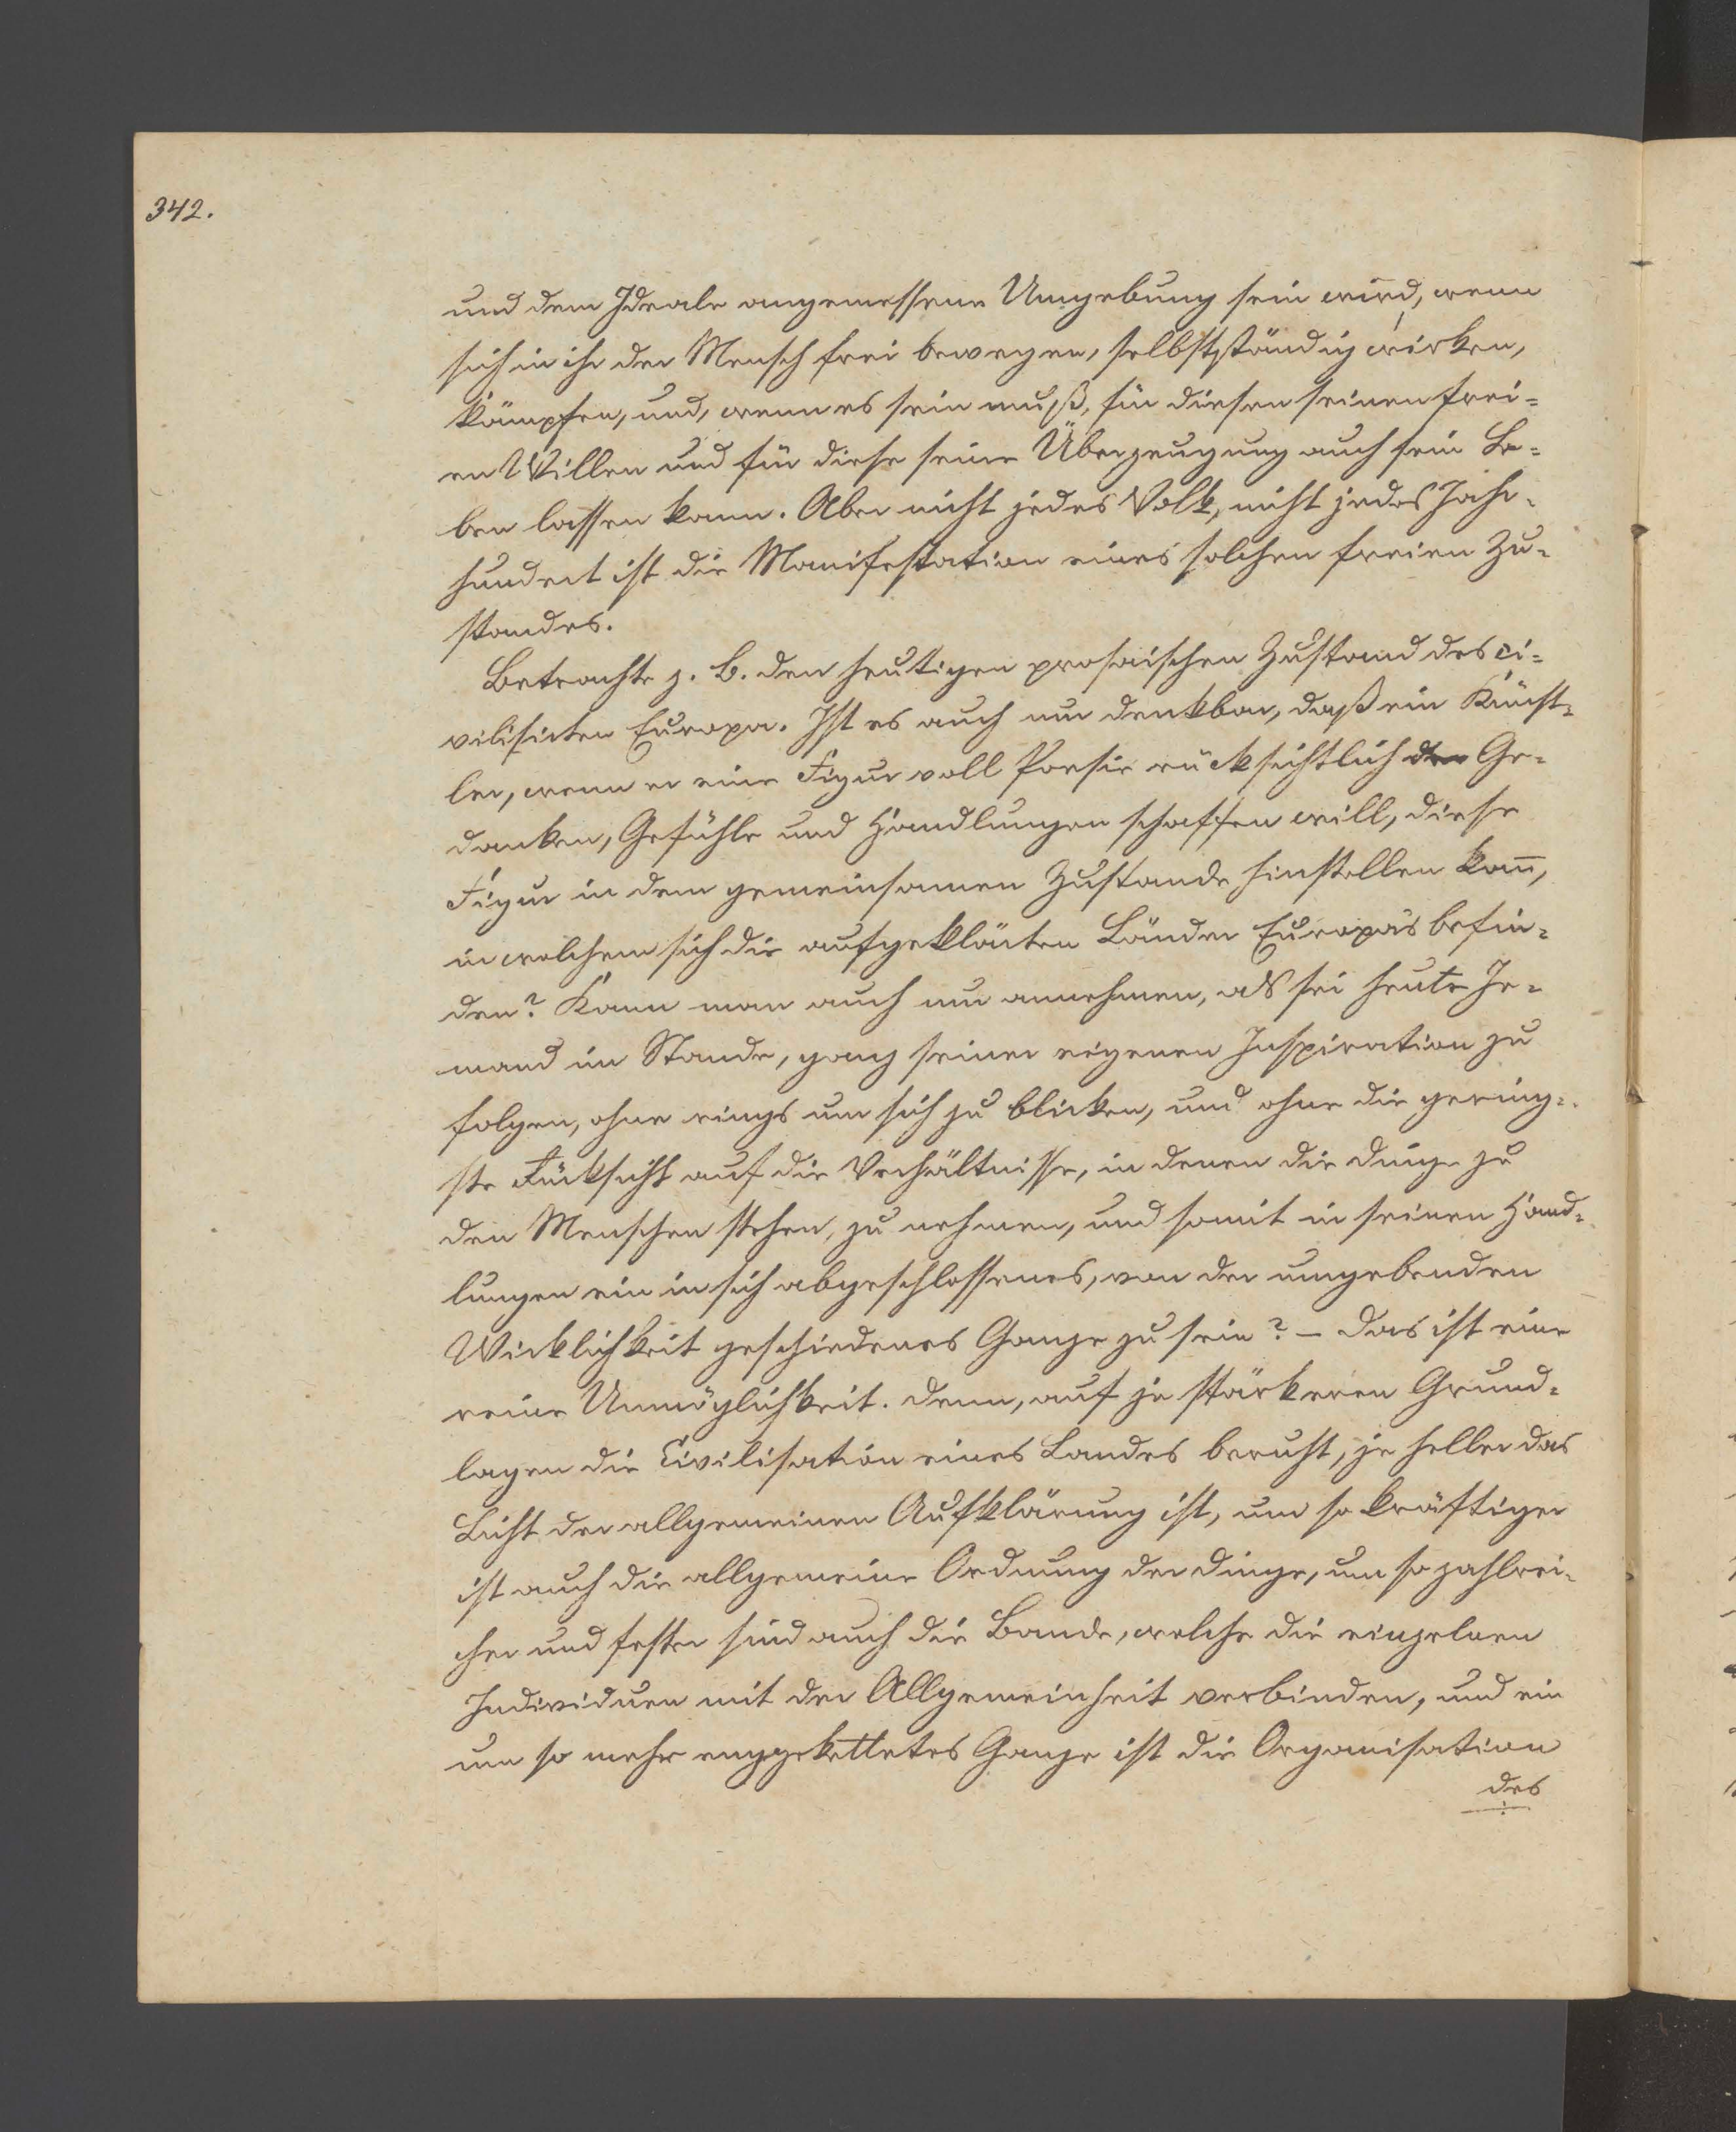 342.
und dem Ideale angemessene Umgebung sein wird, wenn
sich in ihr der Mensch frei bewegen, selbstständig wirken,
kämpfen, und, wenn es sein muß, für diesen seinen frei=
en Willen und für diese seine Überzeugung auch sein Le=
ben lassen kann. Aber nicht jedes Volk, nicht jedes Jahr=
hundert ist die Manifestation eines solchen freien Zu=
standes.
Betrachte z. B. den heutigen prosaischen Zustand des ci=
vilisirten Europa. Ist es auch nur denkbar, daß ein Künst=
ler, wenn er eine Figur voll Poesie rücksichtlich der Ge=
danken, Gefühle und Handlungen schaffen will, diese
Figur in dem gemeinsamen Zustande hinstellen kann̅,
in welchem sich die aufgeklärten Länder Europa's befin=
den? Kann man auch nur annehmen, als sei heute Je=
mand im Stande, ganz seiner eigenen Inspiration zu
folgen, ohne rings um sich zu blicken, und ohne die gering=
ste Rücksicht auf die Verhältnisse, in denen die Dinge zu
den Menschen stehen, zu nehmen, und somit in seinen Hand=
lungen ein in sich abgeschlossenes, von der umgebenden
Wirklichkeit geschiedenes Ganze zu sein? – Das ist eine
reine Unmöglichkeit. Denn, auf je stärkeren Grund=
lagen die Civilisation eines Landes beruht, je heller das
Licht der allgemeinen Aufklärung ist, um so kräftiger
ist auch die allgemeine Ordnung der Dinge, um so zahlrei=
cher und fester sind auch die Bande, welche die einzelnen
Individuen mit der Allgemeinheit verbinden, und ein
um so mehr enggekettetes Ganze ist die Organisation
des